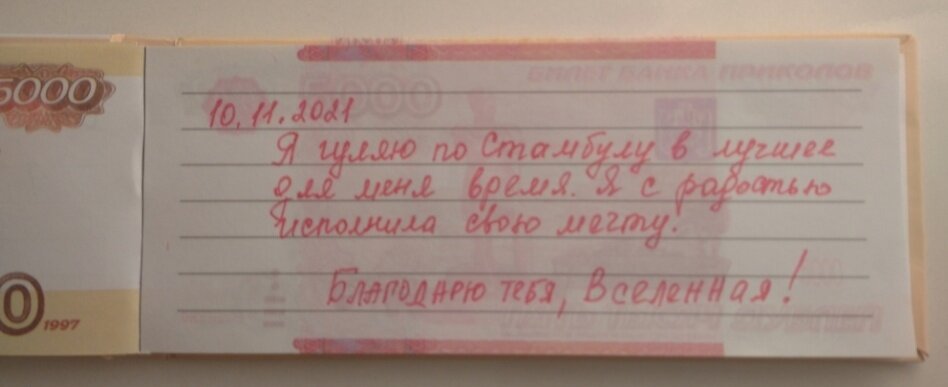 5000
10.11.2021
Я гуляю по Стамбулу в лучшее
для меня время. Я с радостью
исполнила свою мечту.
Благодарю тебя, Вселенная!
0 1997
БИЛЕТ БАНКА ПРИКОЛОВ
5000